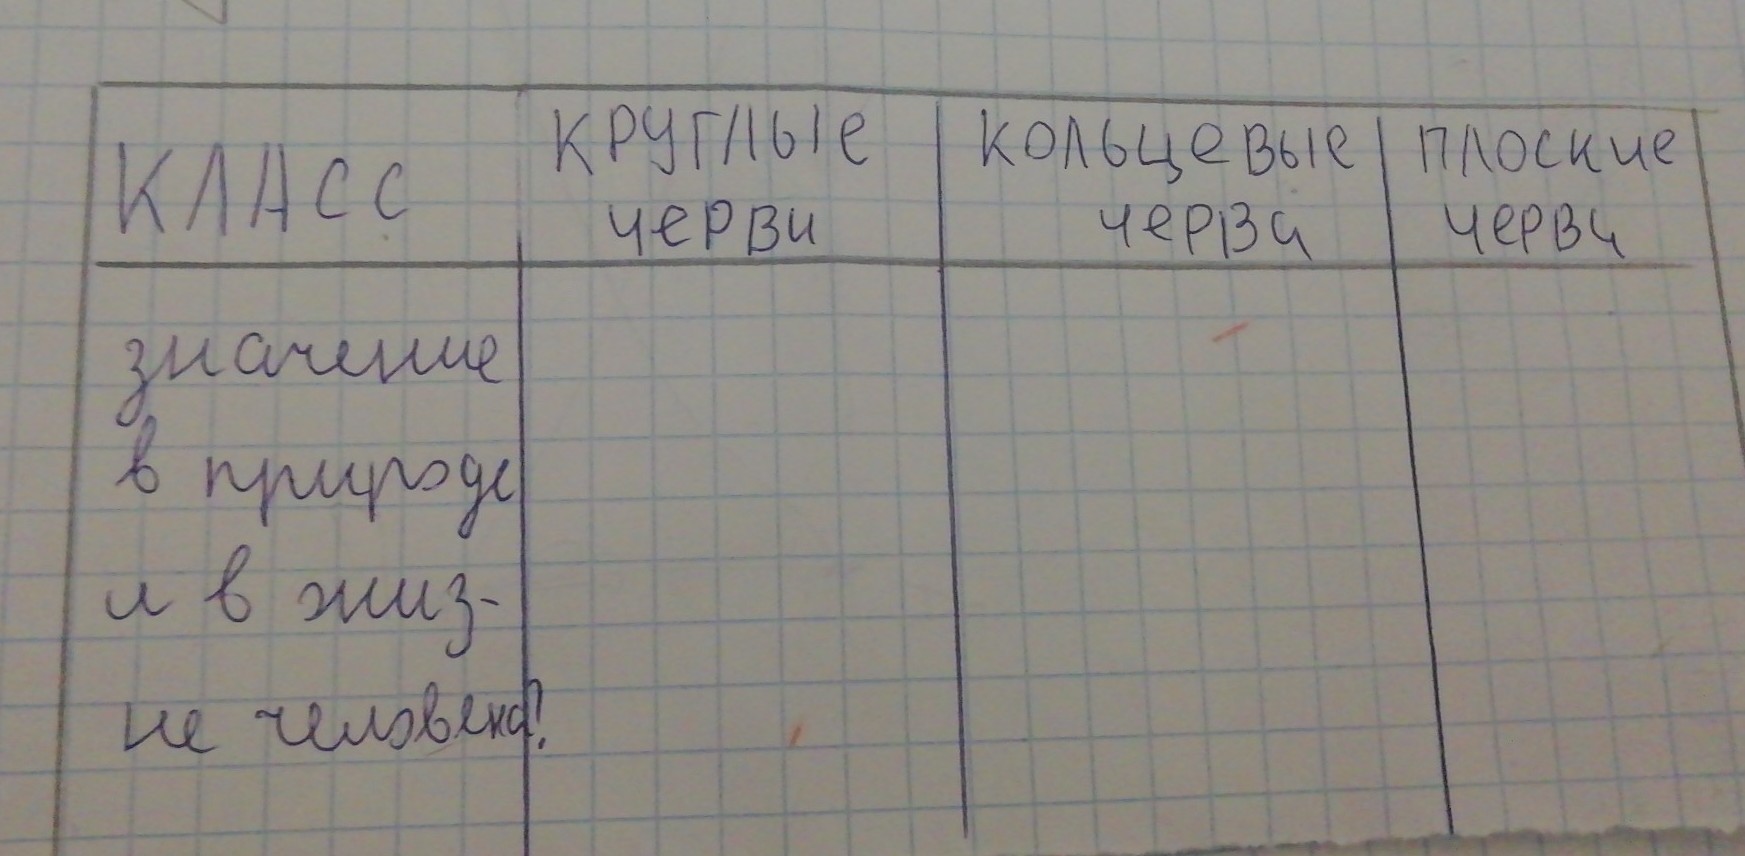 КЛАСС
КРУГЛЫЕ
ЧЕРВИ
КОЛЬЦЕВЫЕ
ЧЕРВИ
ПЛОСКИЕ
ЧЕРВИ
значение
в природе
и в жиз-
не человека?